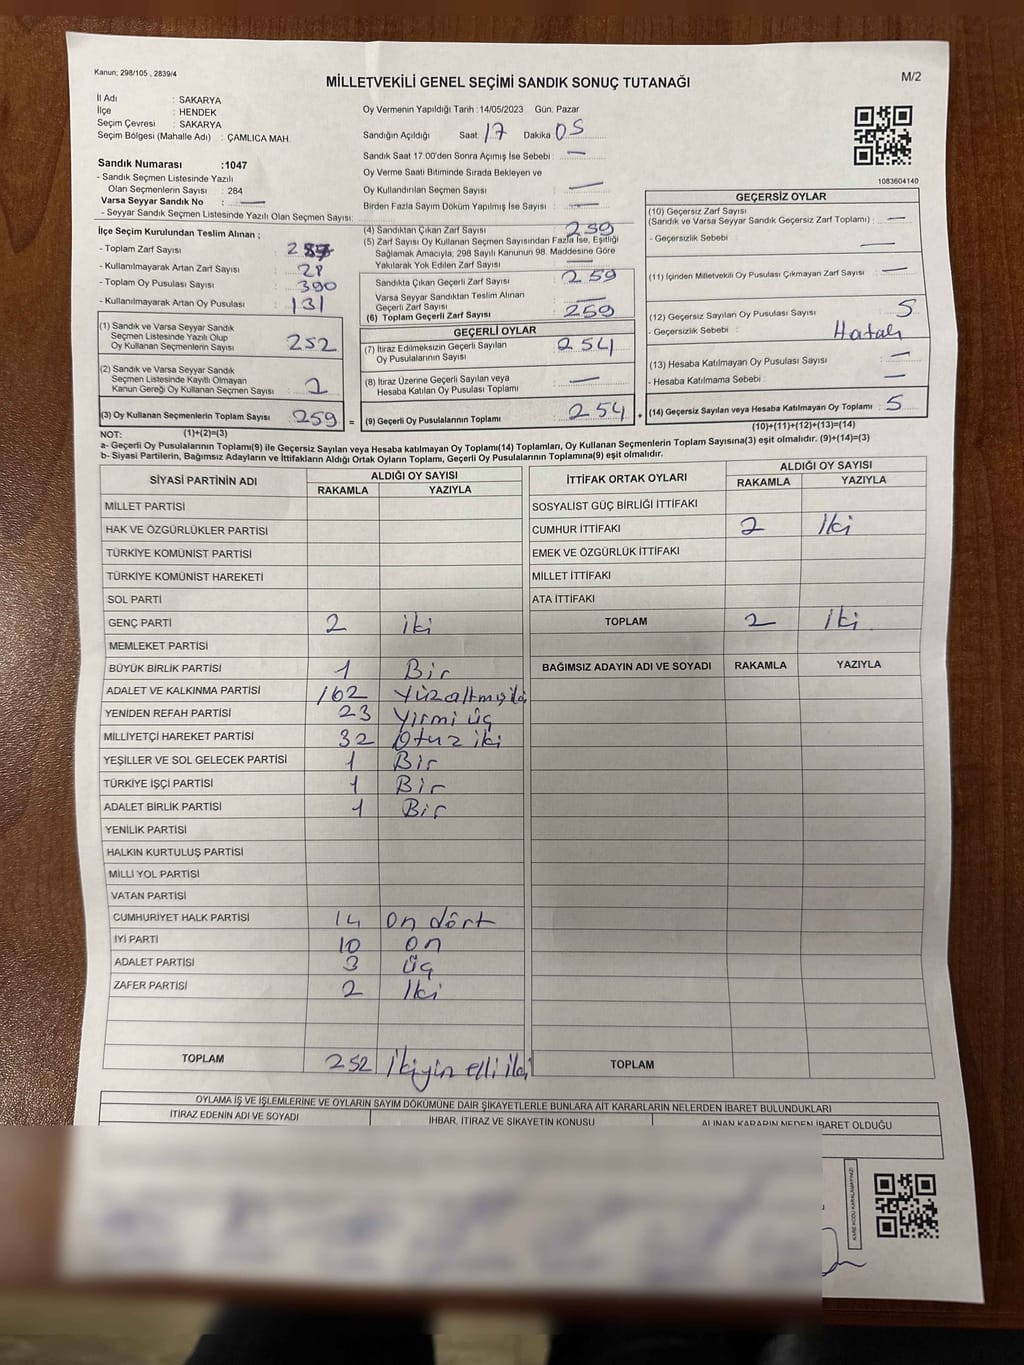 Kanun; 298/105 , 2839/4
MİLLETVEKİLİ GENEL SEÇİMİ SANDIK SONUÇ TUTANAĞI
M/2
İl Adı : SAKARYA
İlçe : HENDEK
Seçim Çevresi : SAKARYA
Seçim Bölgesi (Mahalle Adı) : ÇAMLICA MAH.
Sandık Numarası :1047
- Sandık Seçmen Listesinde Yazılı
Olan Seçmenlerin Sayısı : 284
Varsa Seyyar Sandık No : —
- Seyyar Sandık Seçmen Listesinde Yazılı Olan Seçmen Sayısı:
Oy Vermenin Yapıldığı Tarih : 14/05/2023 Gün: Pazar
Sandığın Açıldığı Saat 17 Dakika 05
Sandık Saat 17:00'den Sonra Açımış İse Sebebi : —
Oy Verme Saati Bitiminde Sırada Bekleyen ve
Oy Kullandırılan Seçmen Sayısı : —
Birden Fazla Sayım Döküm Yapılmış İse Sayısı : —
1083604140
İlçe Seçim Kurulundan Teslim Alınan ;
- Toplam Zarf Sayısı :
- Kullanılmayarak Artan Zarf Sayısı : 28
- Toplam Oy Pusulası Sayısı : 390
- Kullanılmayarak Artan Oy Pusulası : 131
(1) Sandık ve Varsa Seyyar Sandık
Seçmen Listesinde Yazılı Olup
Oy Kullanan Seçmenlerin Sayısı : 252
(2) Sandık ve Varsa Seyyar Sandık
Seçmen Listesinde Kayıtlı Olmayan
Kanun Gereği Oy Kullanan Seçmen Sayısı :
(3) Oy Kullanan Seçmenlerin Toplam Sayısı : 259
(1)+(2)=(3)
(4) Sandıktan Çıkan Zarf Sayısı : 259
(5) Zarf Sayısı Oy Kullanan Seçmen Sayısından Fazla İse, Eşitliği
Sağlamak Amacıyla, 298 Sayılı Kanunun 98. Maddesine Göre
Yakılarak Yok Edilen Zarf Sayısı : —
Sandıkta Çıkan Geçerli Zarf Sayısı : 259
Varsa Seyyar Sandıktan Teslim Alınan
Geçerli Zarf Sayısı : —
(6) Toplam Geçerli Zarf Sayısı : 259
GEÇERLİ OYLAR
(7) İtiraz Edilmeksizin Geçerli Sayılan
Oy Pusulalarının Sayısı : 254
(8) İtiraz Üzerine Geçerli Sayılan veya
Hesaba Katılan Oy Pusulası Toplamı : —
= (9) Geçerli Oy Pusulalarının Toplamı : 254
GEÇERSİZ OYLAR
(10) Geçersiz Zarf Sayısı
(Sandık ve Varsa Seyyar Sandık Geçersiz Zarf Toplamı) : —
- Geçersizlik Sebebi : —
(11) İçinden Milletvekili Oy Pusulası Çıkmayan Zarf Sayısı : —
(12) Geçersiz Sayılan Oy Pusulası Sayısı : 5
- Geçersizlik Sebebi : Hatalı
(13) Hesaba Katılmayan Oy Pusulası Sayısı : —
- Hesaba Katılmama Sebebi : —
+ (14) Geçersiz Sayılan veya Hesaba Katılmayan Oy Toplamı : 5
(10)+(11)+(12)+(13)=(14)
NOT:
a- Geçerli Oy Pusulalarının Toplamı(9) ile Geçersiz Sayılan veya Hesaba katılmayan Oy Toplamı(14) Toplamları, Oy Kullanan Seçmenlerin Toplam Sayısına(3) eşit olmalıdır. (9)+(14)=(3)
b- Siyasi Partilerin, Bağımsız Adayların ve İttifakların Aldığı Ortak Oyların Toplamı, Geçerli Oy Pusulalarının Toplamına(9) eşit olmalıdır.
SİYASİ PARTİNİN ADI ALDIĞI OY SAYISI
RAKAMLA YAZIYLA
MİLLET PARTİSİ
HAK VE ÖZGÜRLÜKLER PARTİSİ
TÜRKİYE KOMÜNİST PARTİSİ
TÜRKİYE KOMÜNİST HAREKETİ
SOL PARTİ
GENÇ PARTİ 2 iki
MEMLEKET PARTİSİ
BÜYÜK BİRLİK PARTİSİ 1 Bir
ADALET VE KALKINMA PARTİSİ 162 Yüzaltmışiki
YENİDEN REFAH PARTİSİ 23 Yirmi üç
MİLLİYETÇİ HAREKET PARTİSİ 32 Otuz iki
YEŞİLLER VE SOL GELECEK PARTİSİ 1 Bir
TÜRKİYE İŞÇİ PARTİSİ 1 Bir
ADALET BİRLİK PARTİSİ 1 Bir
YENİLİK PARTİSİ
HALKIN KURTULUŞ PARTİSİ
MİLLİ YOL PARTİSİ
VATAN PARTİSİ
CUMHURİYET HALK PARTİSİ 14 On dört
İYİ PARTİ 10 on
ADALET PARTİSİ 3 üç
ZAFER PARTİSİ 2 İki
TOPLAM 252 İkiyüz elli iki
İTTİFAK ORTAK OYLARI ALDIĞI OY SAYISI
RAKAMLA YAZIYLA
SOSYALİST GÜÇ BİRLİĞİ İTTİFAKI
CUMHUR İTTİFAKI 2 İki
EMEK VE ÖZGÜRLÜK İTTİFAKI
MİLLET İTTİFAKI
ATA İTTİFAKI
TOPLAM 2 İki
BAĞIMSIZ ADAYIN ADI VE SOYADI RAKAMLA YAZIYLA
TOPLAM
OYLAMA İŞ VE İŞLEMLERİNE VE OYLARIN SAYIM DÖKÜMÜNE DAİR ŞİKAYETLERLE BUNLARA AİT KARARLARIN NELERDEN İBARET BULUNDUKLARI
İTİRAZ EDENİN ADI VE SOYADI İHBAR, İTİRAZ VE ŞİKAYETİN KONUSU ALINAN KARARIN NEDEN İBARET OLDUĞU
KARE KODU KARALAMAYINIZ!